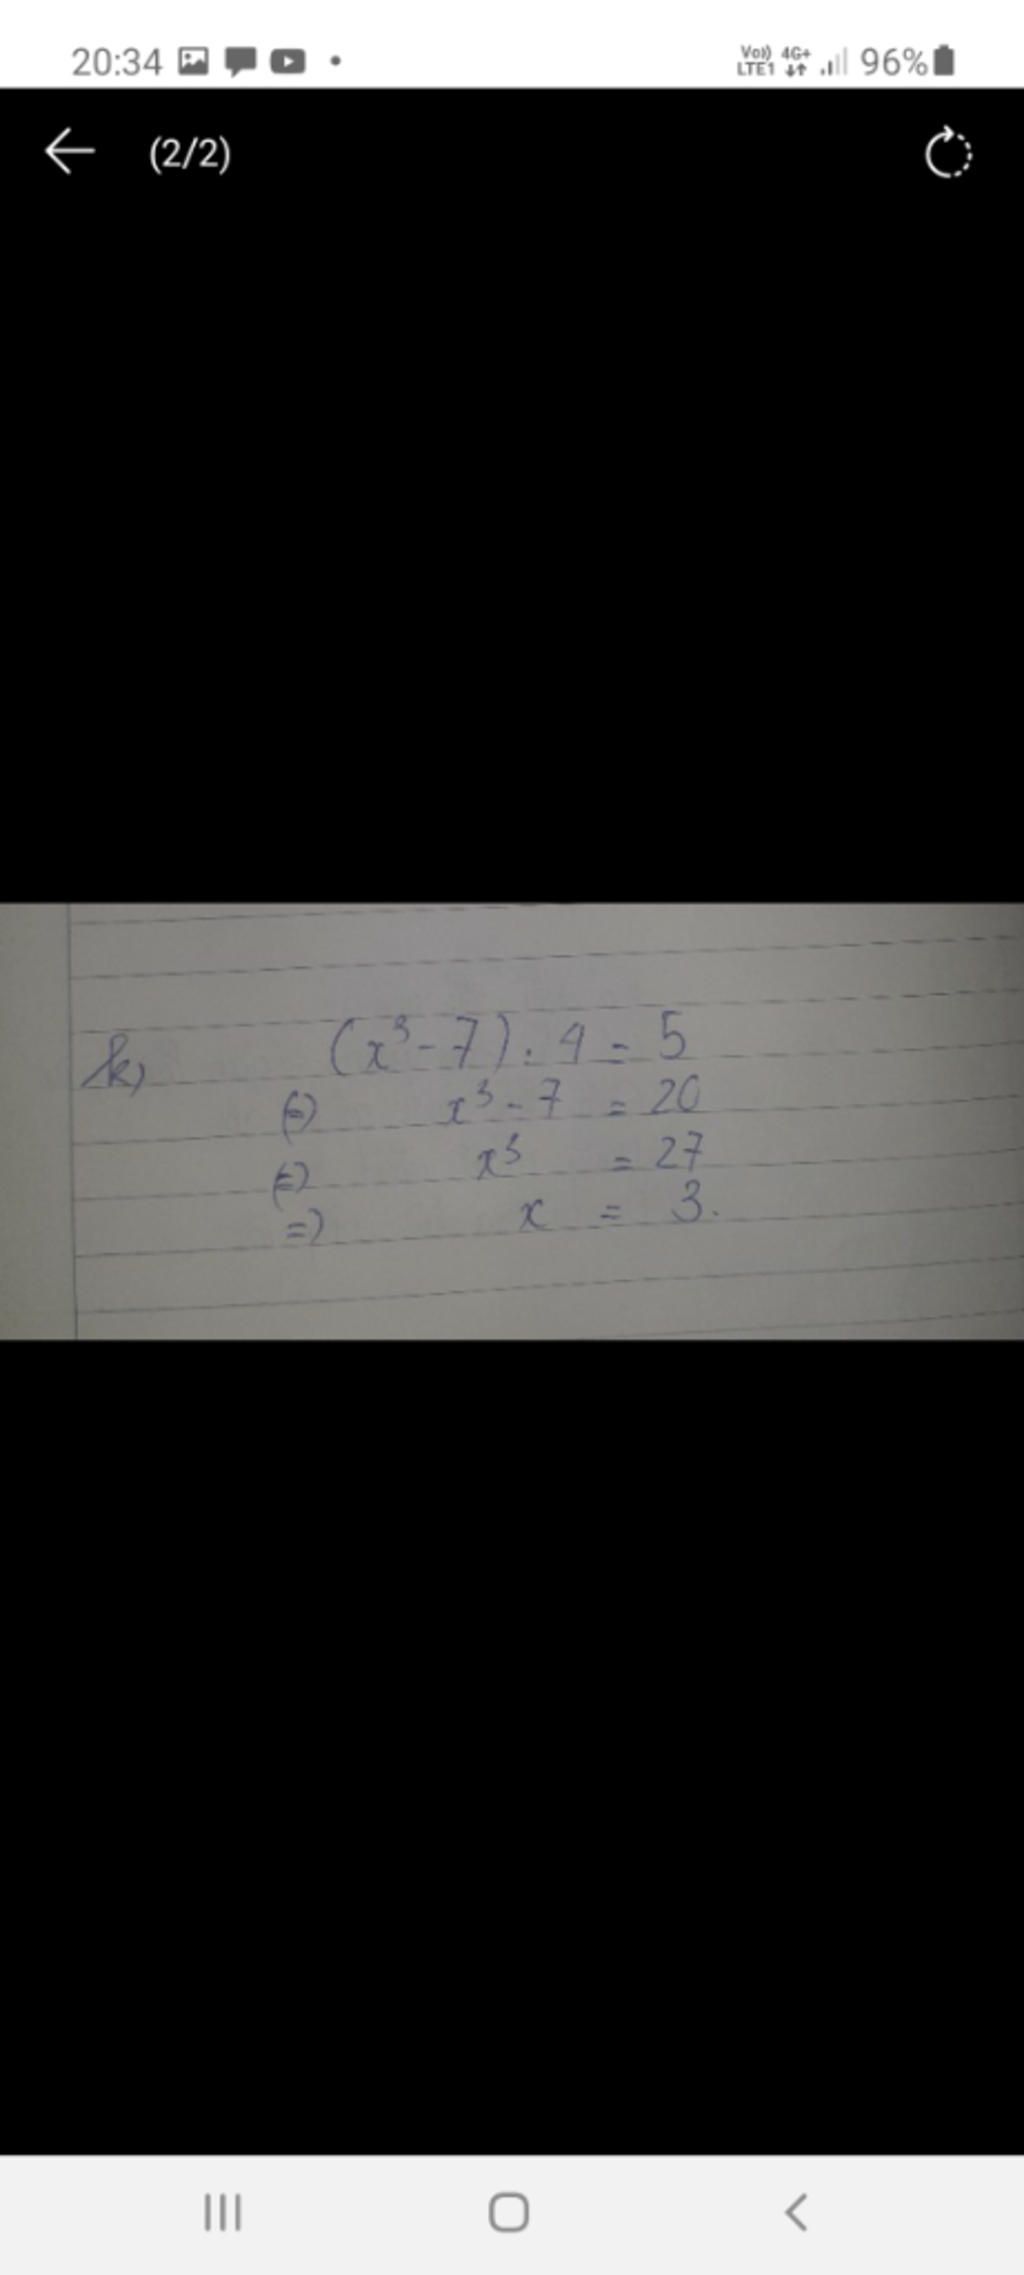 20:34 Vo)) LTE1 4G+ 96%
(2/2)
k, (x³-7):4 = 5
(=) x³-7 = 20
(=) x³ = 27
=) x = 3.